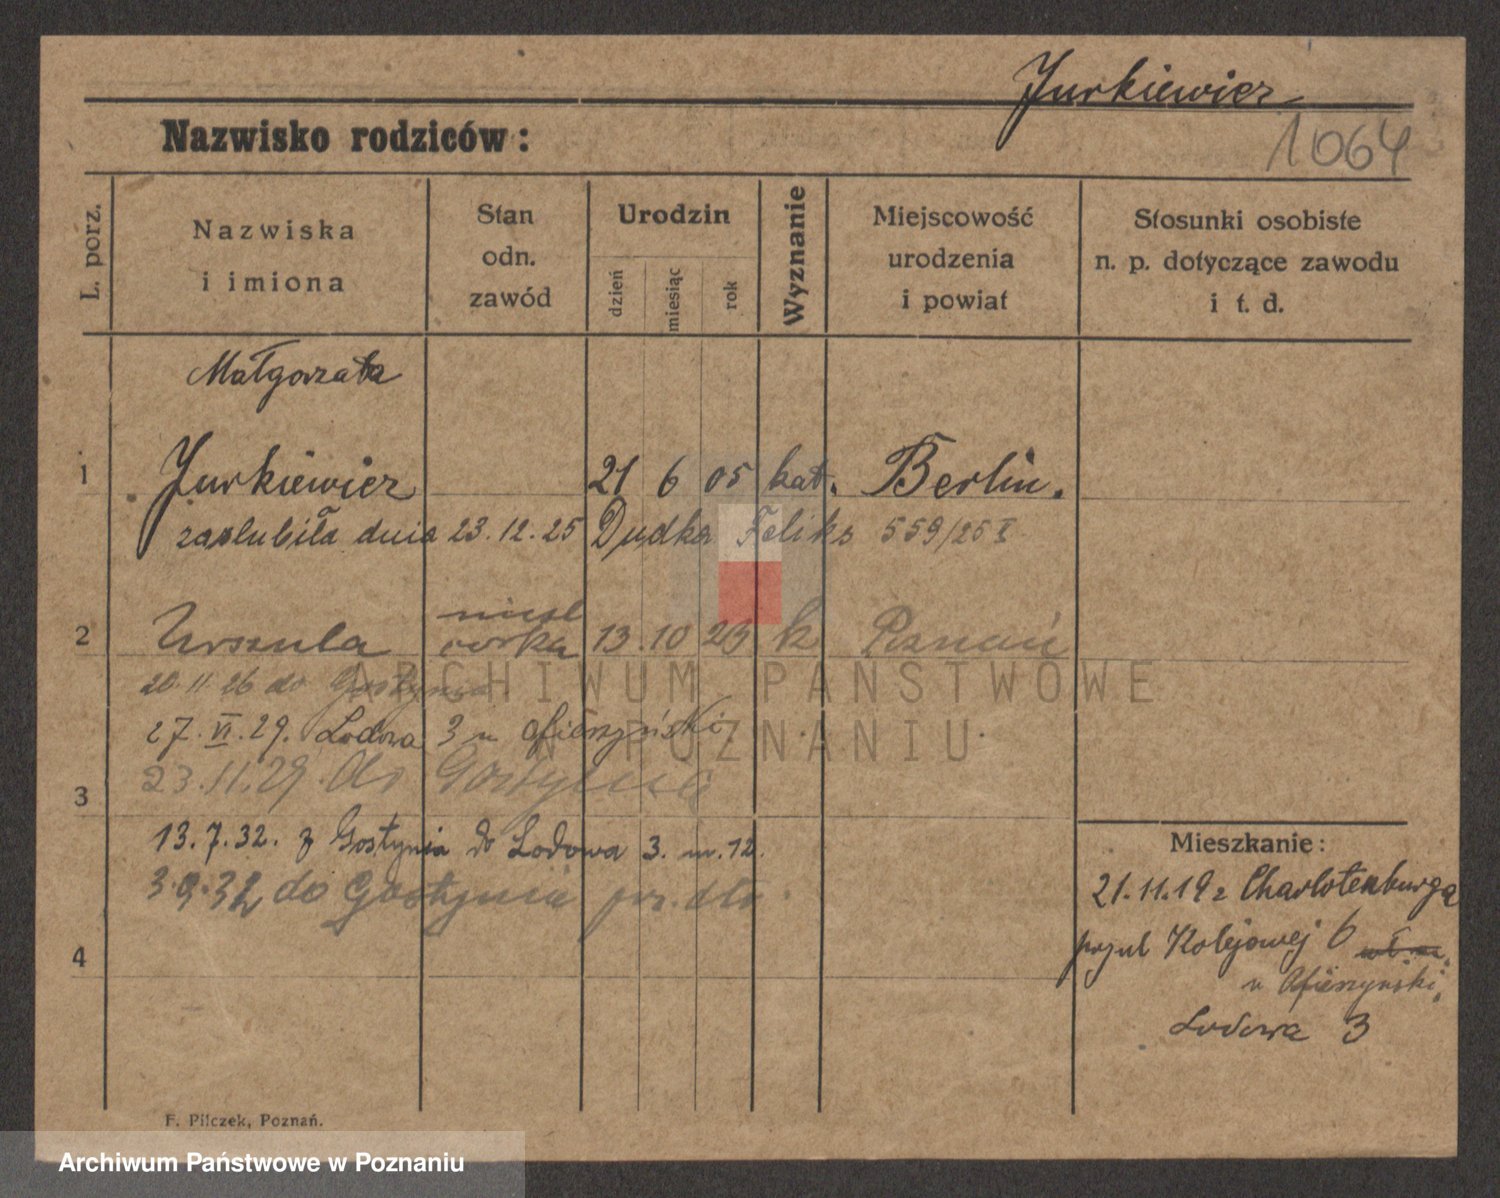 Jurkiewicz
Nazwisko rodziców:
1064
L. porz.
Nazwiska
i imiona
Stan
odn.
zawód
Urodzin
dzień
miesiąc
rok
Wyznanie
Miejscowość
urodzenia
i powiat
Stosunki osobiste
n. p. dotyczące zawodu
i t. d.
Małgorzata
1 Jurkiewicz 21 6 05 kat. Berlin.
zaślubiła dnia 23.12.25 Dudka Feliks 559/25 I
nieśl
2 Urszula córka 13.10 23 k Poznań
20.11.26 do Gostynia
27.VI.29. Lodowa 3 u
23.11.29. do Gostynia
3
13.7.32. z Gostynia do Lodowa 3. m. 12.
3.9.32 do Gostynia
4
Mieszkanie:
21.11.19 z Charlotenburga
Kolejowej 6
u
Lodowa 3
F. Pilczek, Poznań.
ARCHIWUM PAŃSTWOWE
W POZNANIU
Archiwum Państwowe w Poznaniu